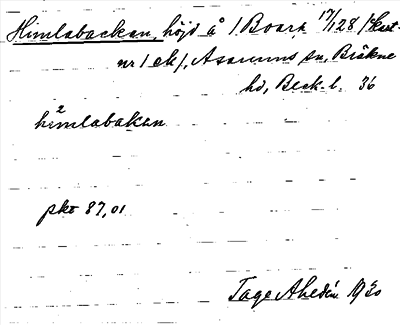 Himlabackan, höjd å 1 Boark 17/128 (kart-
nr 1 ek), Asarums sn, Bräkne
hd, Bleck. l. 36
2
himlabakan
pkt 87,01
Tage Ahldén 1930